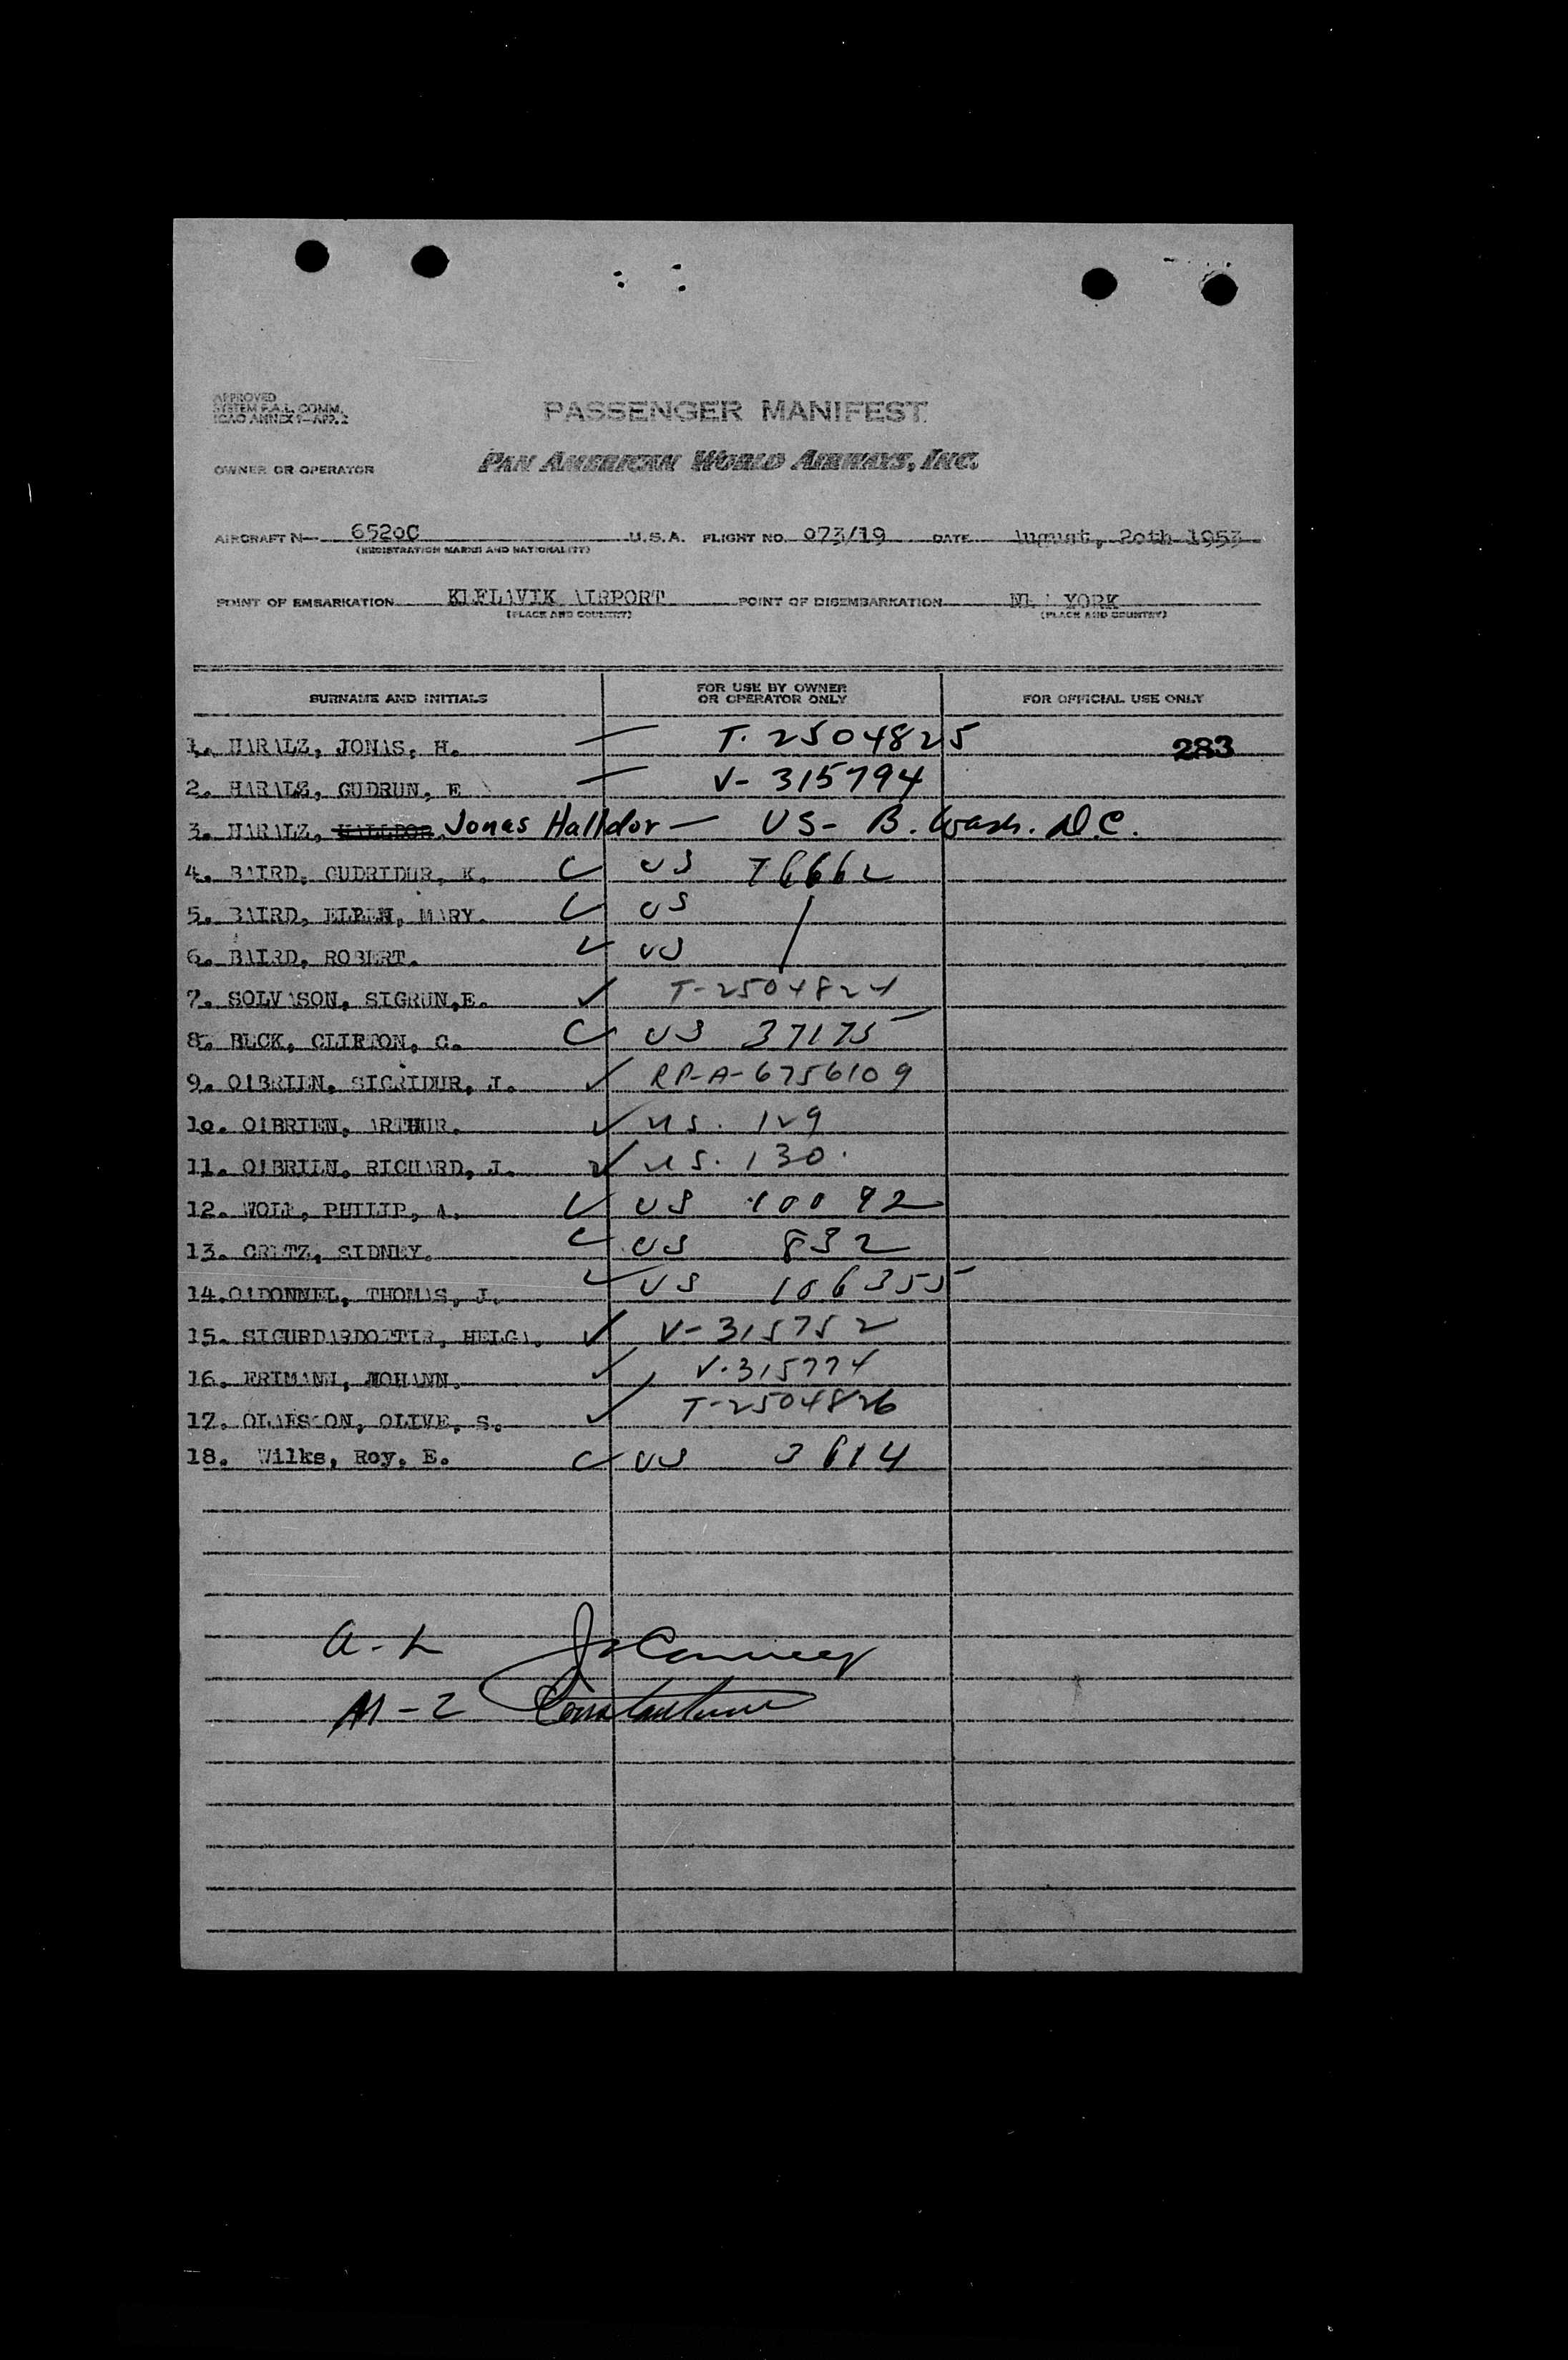 APPROVED
SYSTEM F.A.L. COMM.
ICAO ANNEX 9—APP. 2
PASSENGER MANIFEST
OWNER OR OPERATOR PAN AMERICAN WORLD AIRWAYS, INC.
AIRCRAFT N— 6520C U.S.A. FLIGHT NO. 073/19 DATE August, 20th 1953
(REGISTRATION MARKS AND NATIONALITY)
POINT OF EMBARKATION KEFLAVIK AIRPORT POINT OF DISEMBARKATION NEW YORK
(PLACE AND COUNTRY) (PLACE AND COUNTRY)
SURNAME AND INITIALS FOR USE BY OWNER OR OPERATOR ONLY FOR OFFICIAL USE ONLY
1. HARALZ, JONAS, H. — T. 2504825 283
2. HARALZ, GUDRUN, E — V- 315794
3. HARALZ, HALLDOR Jonas Halldor — US- B. Wash. D.C.
4. BAIRD, GUDRIDUR, K. US 76662
5. BAIRD, ELLEN, MARY. US /
6. BAIRD, ROBERT. US
7. SOLVASON, SIGRUN,E. ✓ T-2504824
8. BUCK, CLIFTON, C. US 37175
9. O'BRIEN, SIGRIDUR, J. ✓ RP-A-6756109
10. O'BRIEN, ARTHUR. ✓ US. 129
11. O'BRIEN, RICHARD, J. ✓ US. 130.
12. WOLF, PHILIP, A. ✓ US 10092
13. GRETZ, SIDNEY. US 832
14.O'DONNEL, THOMAS, J. ✓ US 106355
15. SIGURDARDOTTIR, HELGA. ✓ V-315752
16. ERIMANN, JOHANN. ✓ V-315774
17. OLAFSSON, OLIVE, S. ✓ T-2504826
18. Wilks, Roy, E. US 3614
a-L
M-2 Constantine